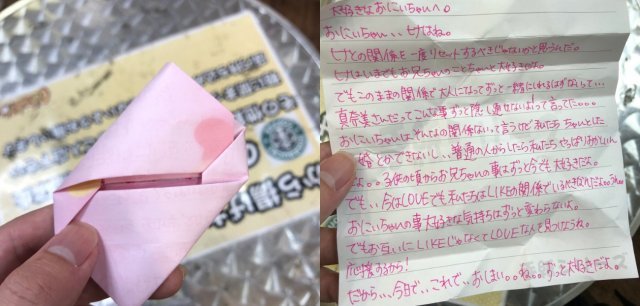 から揚げ
大好きなおにいちゃんへ。
おにいちゃん、、ヒナはね。
ヒナとの関係を一度リセットするべきじゃないかと思うんだ。
ヒナはいまでもお兄ちゃんのことちゃんと大好きだよ。
でもこのままの関係で大人になってずっと一緒にいれるはずないって…
真奈美さんだってこんな事ずっと隠し通せないよって言ってた…。
おにいちゃんはそんなの関係ないって言うけど私たちちゃんとした
婚とかできないし、、普通の人からしたら私たちやっぱりおかしいん
だよ。。子供の頃からお兄ちゃんの事はずっと今でも大好きだよ。
でも、、今はLOVEでも私たちはLIKEの関係でいるべきなんだよ。
おにいちゃんの事大好きな気持ちはずっと変わらないよ。
でもお互いにLIKEじゃなくてLOVEな人見つけようね。
応援するから!
だから、、、今日で、、これで、、おしまい。。ね。。ずっと大好きだよ。